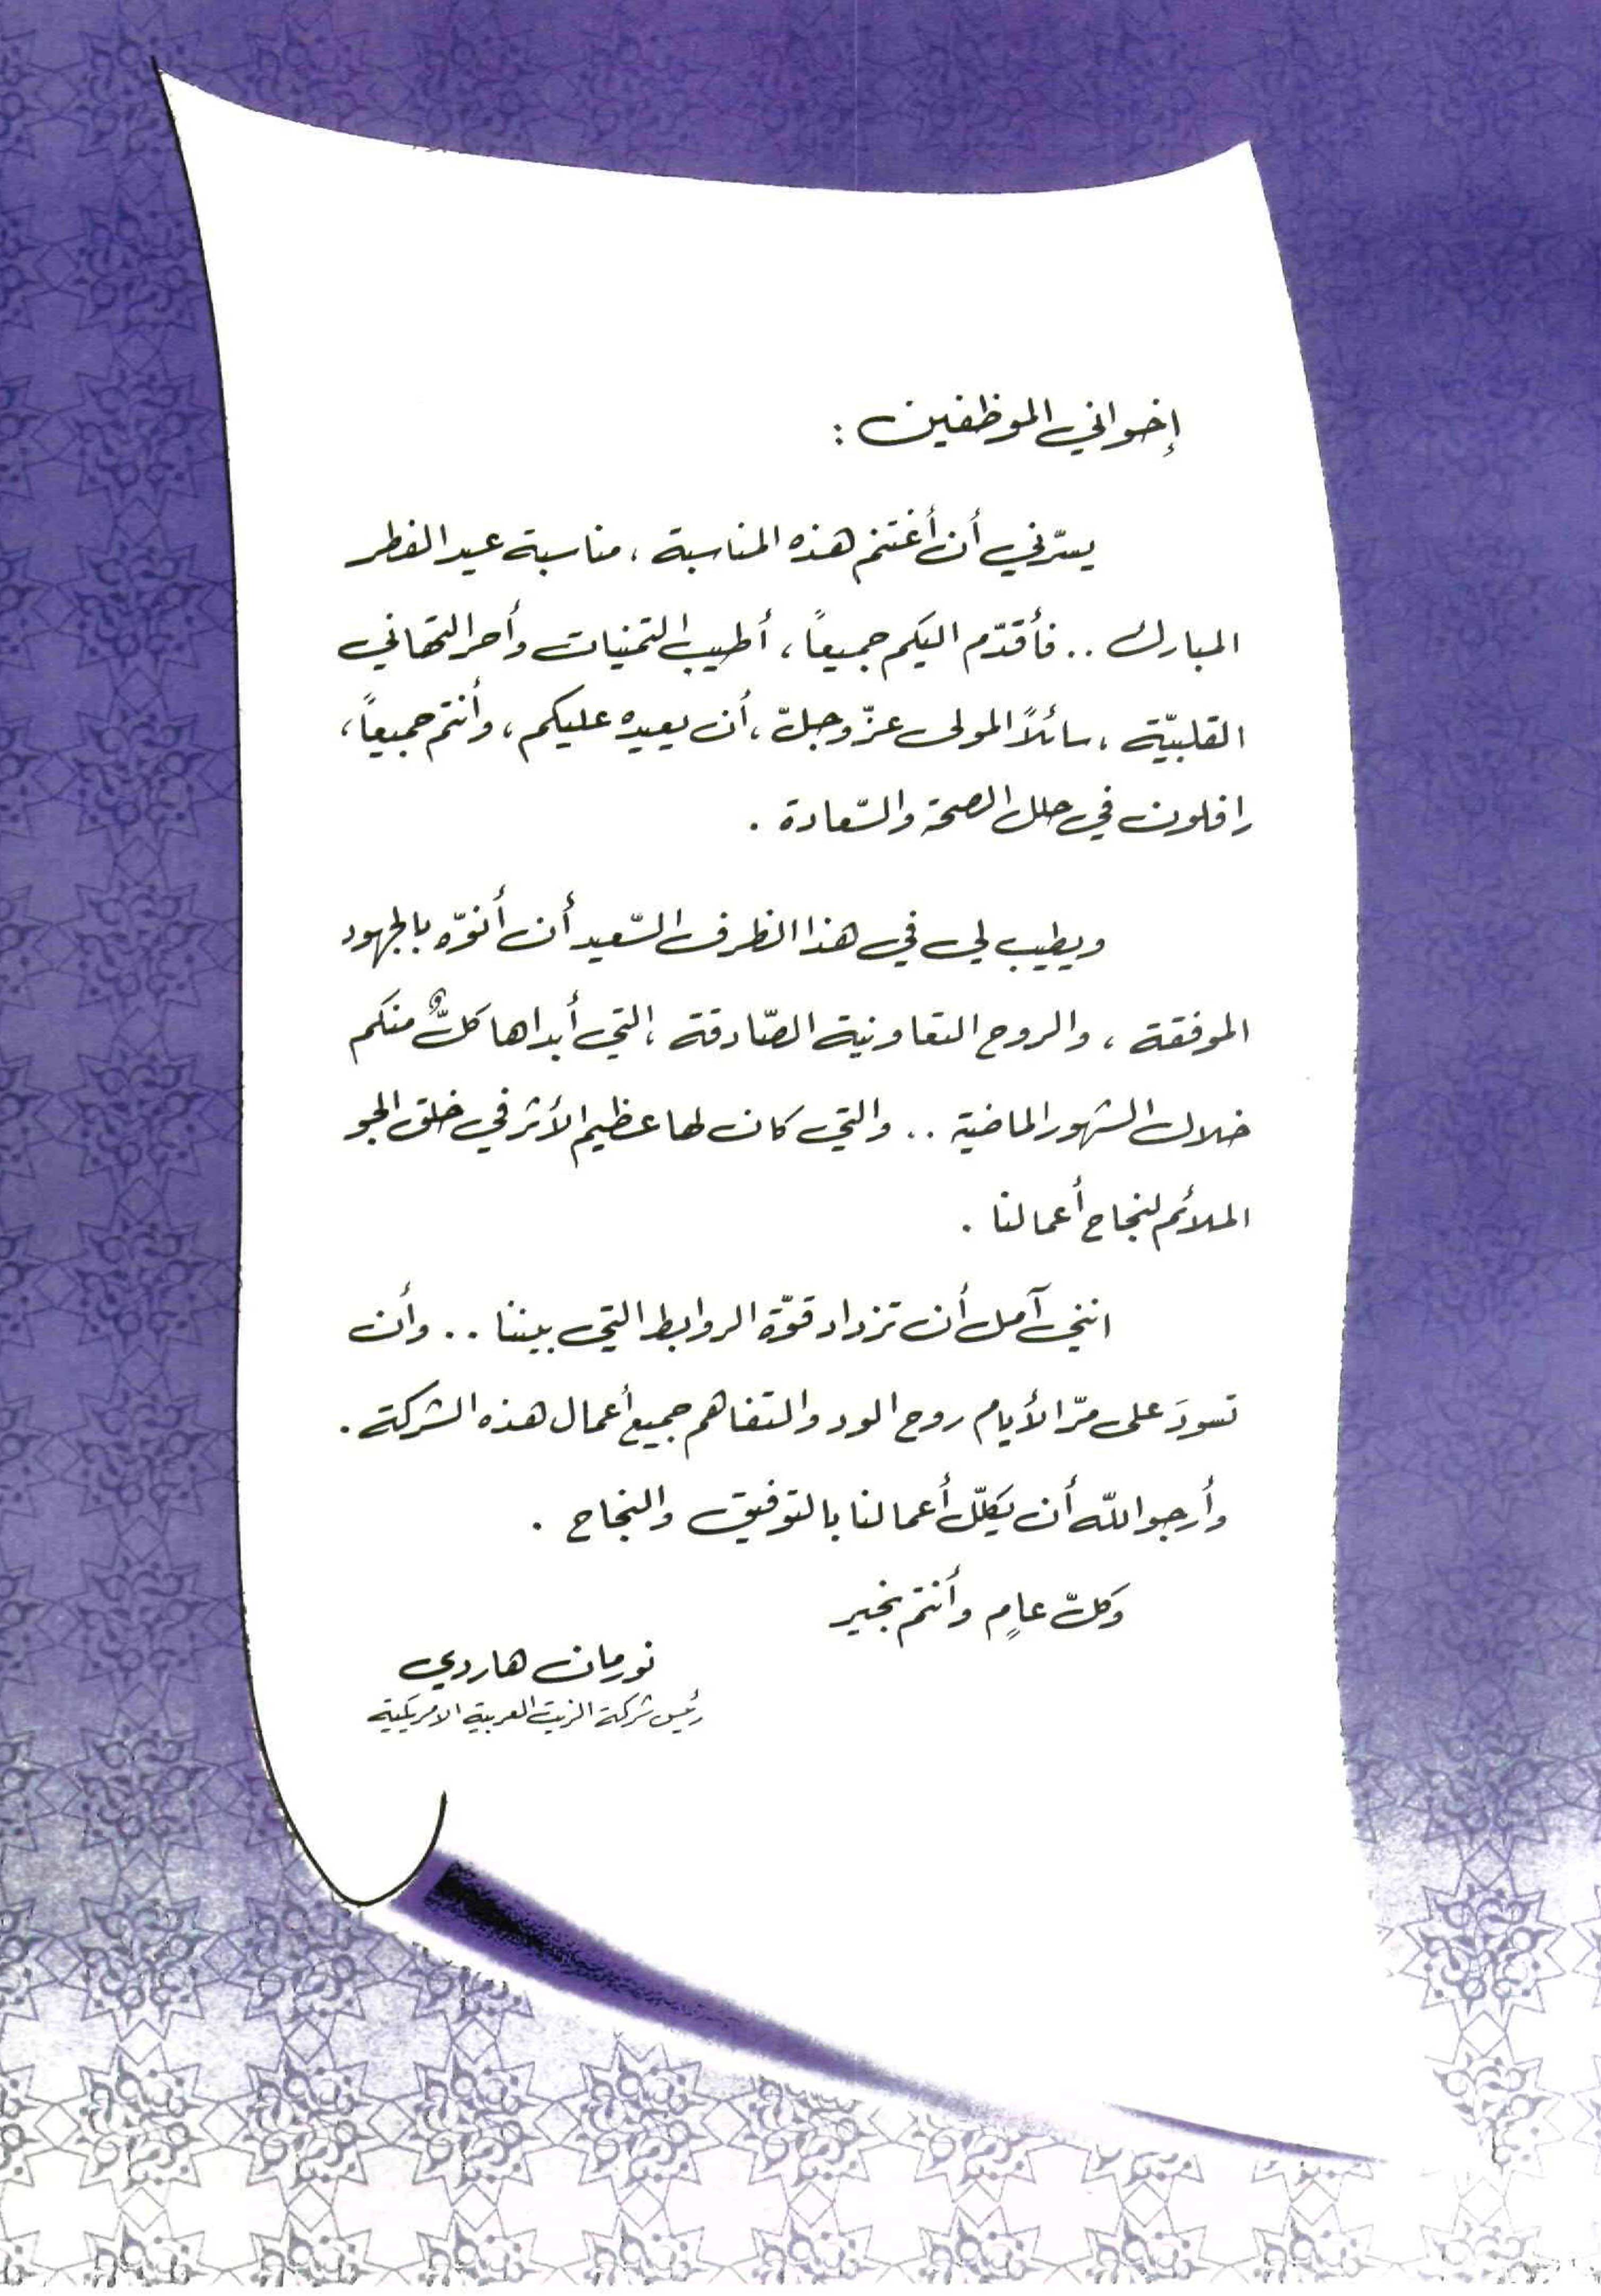 إخواني الموظفين :
يسّرني أن أغتنم هذه المناسبة ، مناسبة عيد الفطر
المبارك .. فأقدّم اليكم جميعاً ، أطيب التمنيات وأحر التهاني
القلبيّة ، سائلاً المولى عزّ وجلّ ، أن يعيده عليكم ، وأنتم جميعاً ،
رافلون في حلل الصحة والسّعادة .
ويطيب لي في هذا الظرف السّعيد أن أنوّه بالجهود
الموفقة ، والروح التعاونية الصّادقة ، التي أبداها كلٌّ منكم
خلال الشهور الماضية .. والتي كان لها عظيم الأثر في خلق الجو
الملائم لنجاح أعمالنا .
انني آمل أن تزداد قوّة الروابط التي بيننا .. وأن
تسودَ على مرّ الأيام روح الود والتفاهم جميع أعمال هذه الشركة .
وأرجو اللّه أن يكلّل أعمالنا بالتوفيق والنجاح .
وكلّ عامٍ وأنتم بخير
نورمان هاردي
رئيس شركة الزيت العربية الامريكية